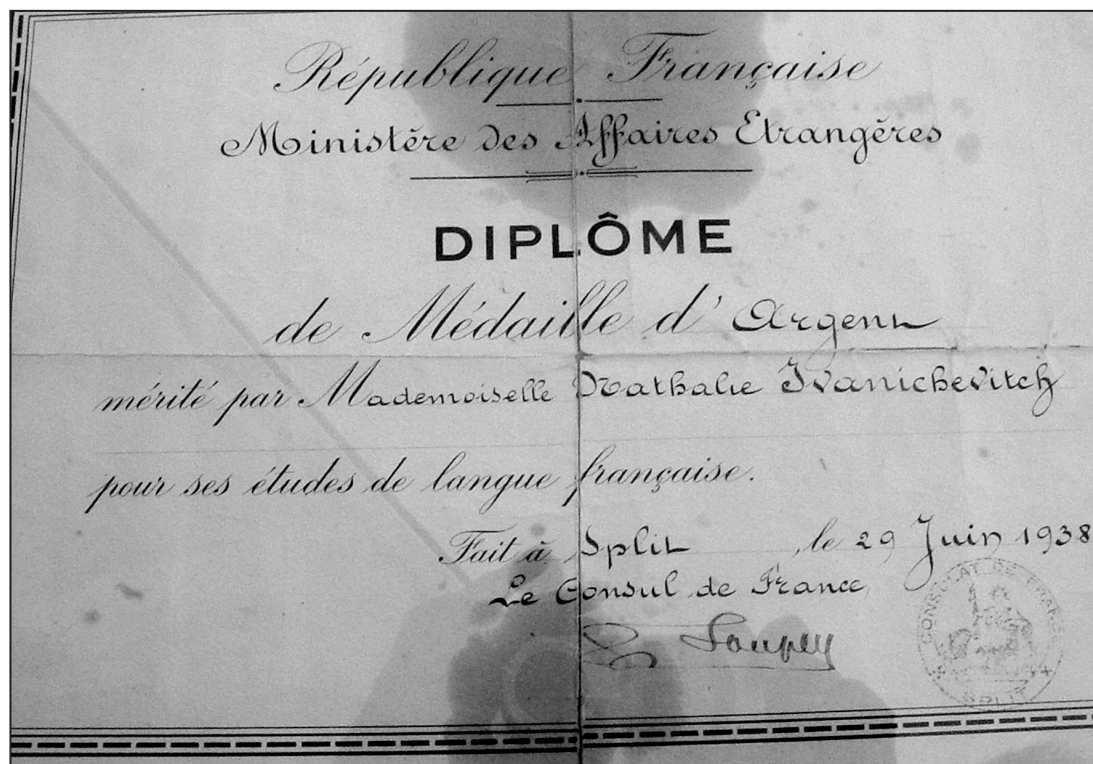 République Française
Ministère des Affaires Etrangères
DIPLÔME
de Médaille d'Argent
mérité par Mademoiselle Nathalie Ivanichevitch
pour ses études de langue française.
Fait à Split, le 29 Juin 1938
Le Consul de France
CONSULAT DE FRANCE
SPLIT